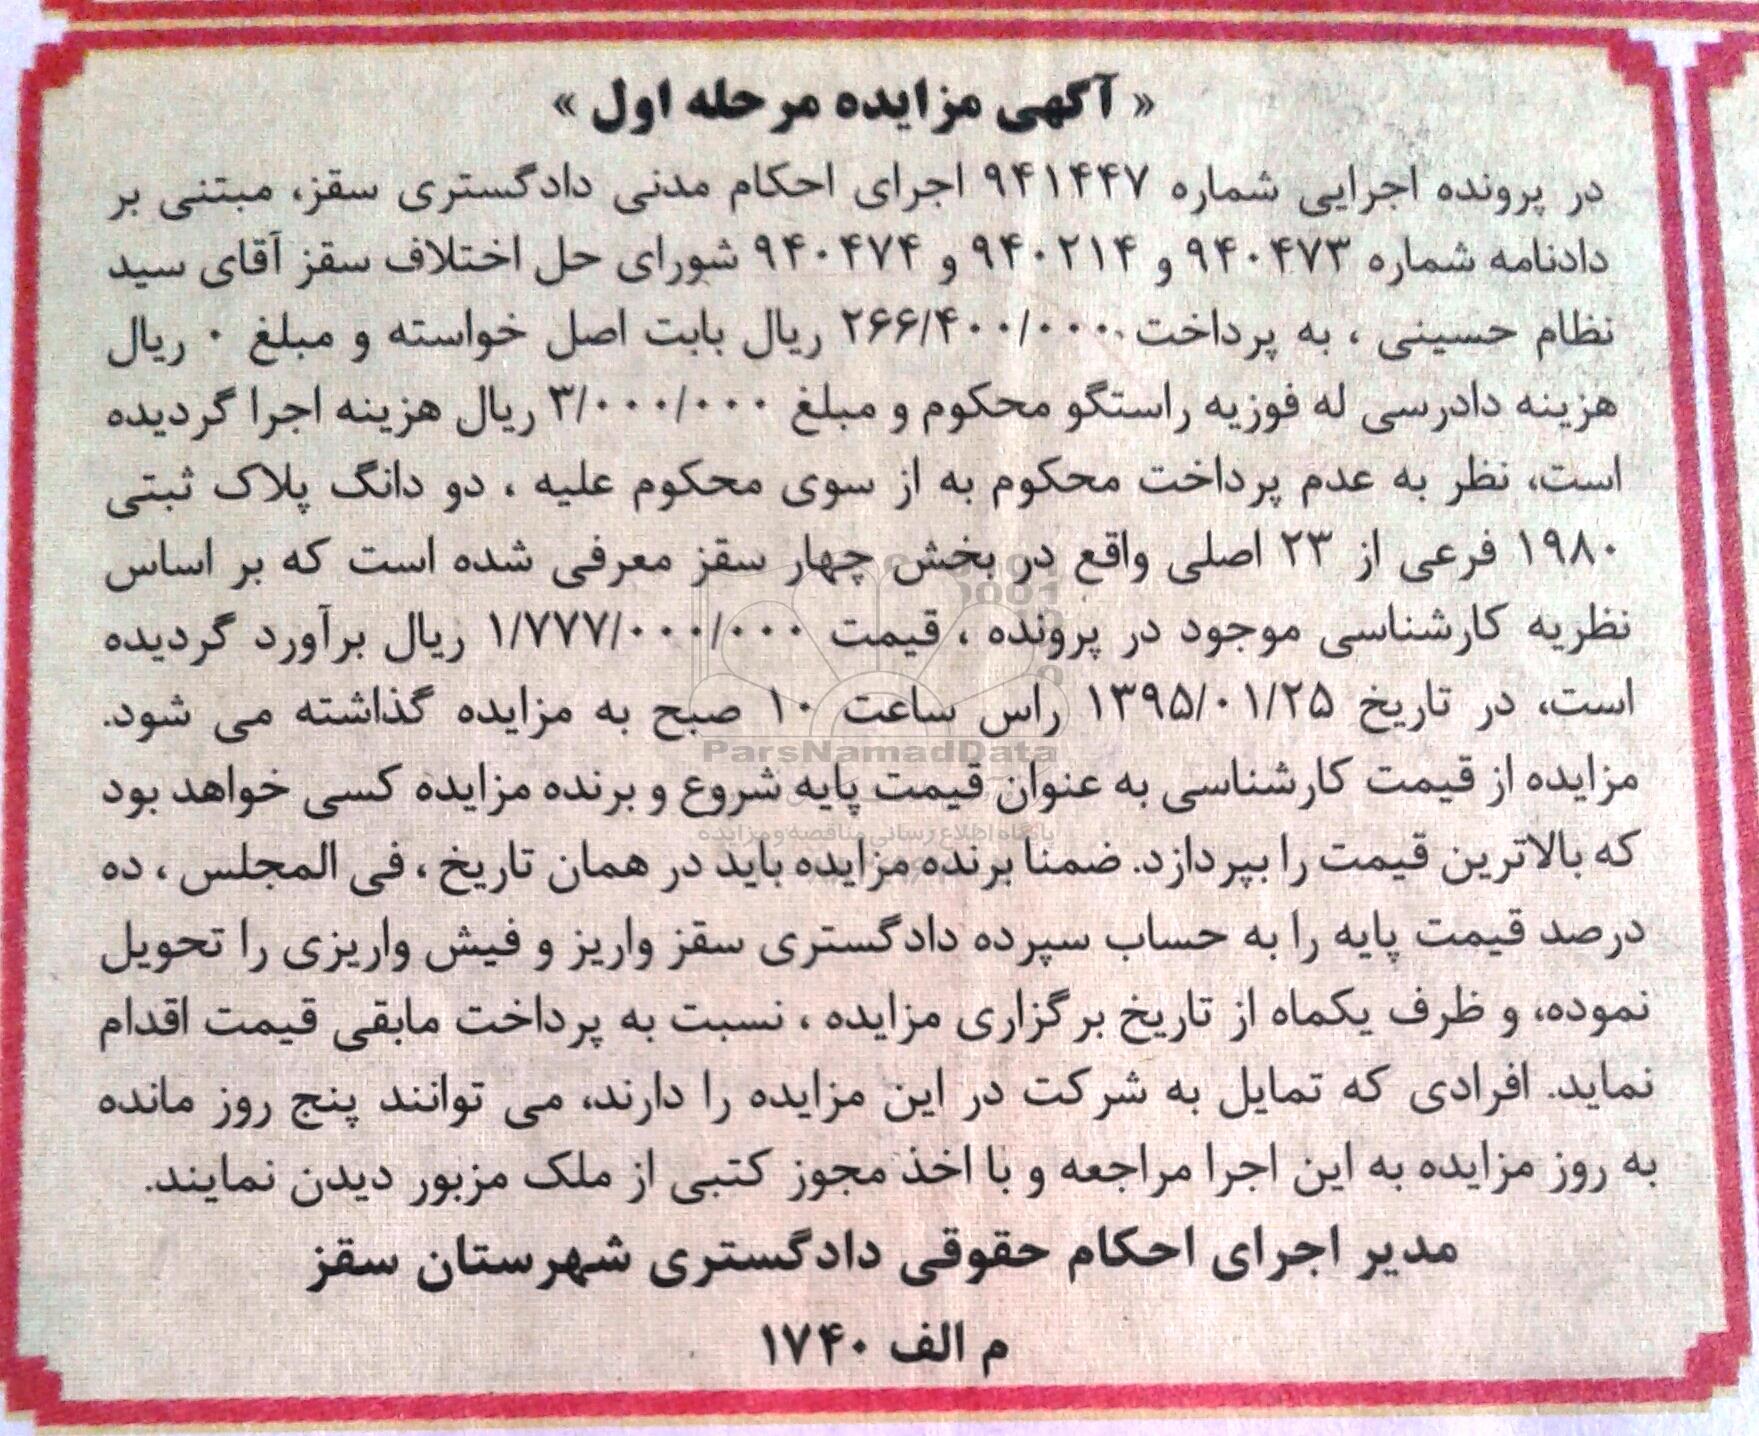 « آگهی مزایده مرحله اول »
در پرونده اجرایی شماره ۹۴۱۴۴۷ اجرای احکام مدنی دادگستری سقز، مبتنی بر
دادنامه شماره ۹۴۰۴۷۳ و ۹۴۰۲۱۴ و ۹۴۰۴۷۴ شورای حل اختلاف سقز آقای سید
نظام حسینی ، به پرداخت ۲۶۶/۴۰۰/۰۰۰ ریال بابت اصل خواسته و مبلغ ۰ ریال
هزینه دادرسی له فوزیه راستگو محکوم و مبلغ ۳/۰۰۰/۰۰۰ ریال هزینه اجرا گردیده
است، نظر به عدم پرداخت محکوم به از سوی محکوم علیه ، دو دانگ پلاک ثبتی
۱۹۸۰ فرعی از ۲۳ اصلی واقع در بخش چهار سقز معرفی شده است که بر اساس
نظریه کارشناسی موجود در پرونده ، قیمت ۱/۷۷۷/۰۰۰/۰۰۰ ریال برآورد گردیده
است، در تاریخ ۱۳۹۵/۰۱/۲۵ راس ساعت ۱۰ صبح به مزایده گذاشته می شود.
ParsNamadData
مزایده از قیمت کارشناسی به عنوان قیمت پایه شروع و برنده مزایده کسی خواهد بود
پایگاه اطلاع رسانی مناقصه و مزایده
که بالاترین قیمت را بپردازد. ضمنا برنده مزایده باید در همان تاریخ ، فی المجلس ، ده
درصد قیمت پایه را به حساب سپرده دادگستری سقز واریز و فیش واریزی را تحویل
نموده، و ظرف یکماه از تاریخ برگزاری مزایده ، نسبت به پرداخت مابقی قیمت اقدام
نماید. افرادی که تمایل به شرکت در این مزایده را دارند، می توانند پنج روز مانده
به روز مزایده به این اجرا مراجعه و با اخذ مجوز کتبی از ملک مزبور دیدن نمایند.
مدیر اجرای احکام حقوقی دادگستری شهرستان سقز
م الف ۱۷۴۰